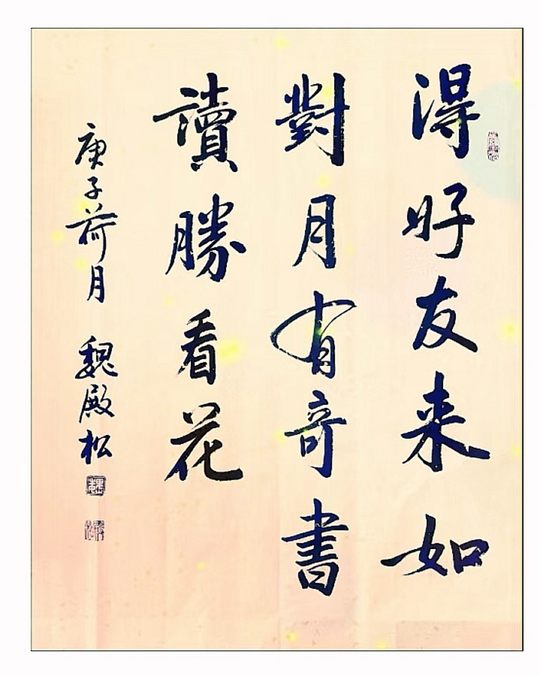 得好友来如
對月有奇書
讀勝看花
庚子荷月 魏殿松